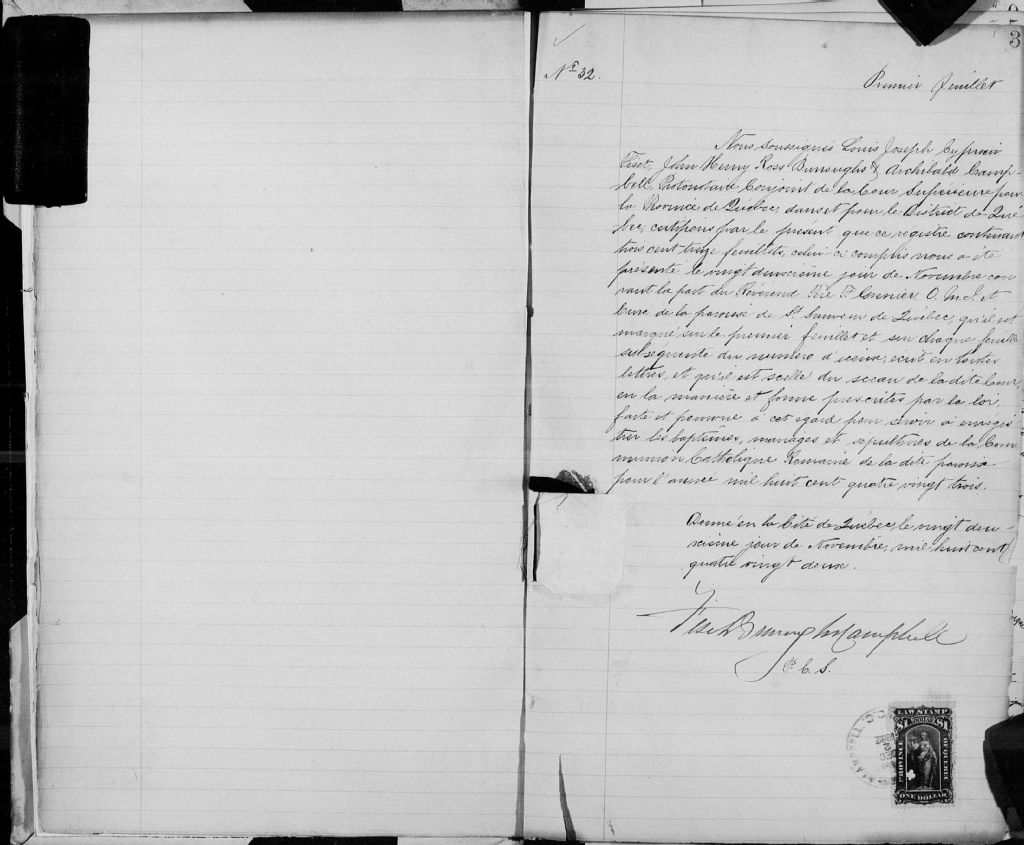 No 32.
Premier feuillet
Nous soussignés Louis Joseph Cyprien
Fiset, John Henry Ross Burroughs & Archibald Camp-
bell, Protonotaire Conjoint de la Cour Supérieure pour
la Province de Québec, dans et pour le District de Qué
bec, certifions par le présent que ce registre contenant
trois cent treize feuillets, celui-ci compris nous a été
présenté le vingt deuxcième jour de Novembre cou
rant la part du Révérend Père F. Grenier O.M.I. et
Curé de la paroisse de St Sauveur de Québec, qu'il est
marqué sur le premier feuillet et sur chaque feuille
subsequente du numéro d'iceux, écrit en toutes
lettres, et qu'il est scellé du sceau de la dite Cour,
en la manière et forme prescrites par la loi
faite et pourvue à cet égard pour servir à enregis
trer les baptêmes, mariages et sépultures de la Com
munion Catholique Romaine de la dite paroisse
pour l'année mil huit cent quatre vingt trois.
Donné en la Cité de Québec, le vingt deu-
xcième jour de Novembre, mil huit cent
quatre vingt deux.
Fiset Burroughs Campbell
P. C. S.
LAW STAMP
$1 DOLLAR $1
PROVINCE OF QUEBEC
ONE DOLLAR